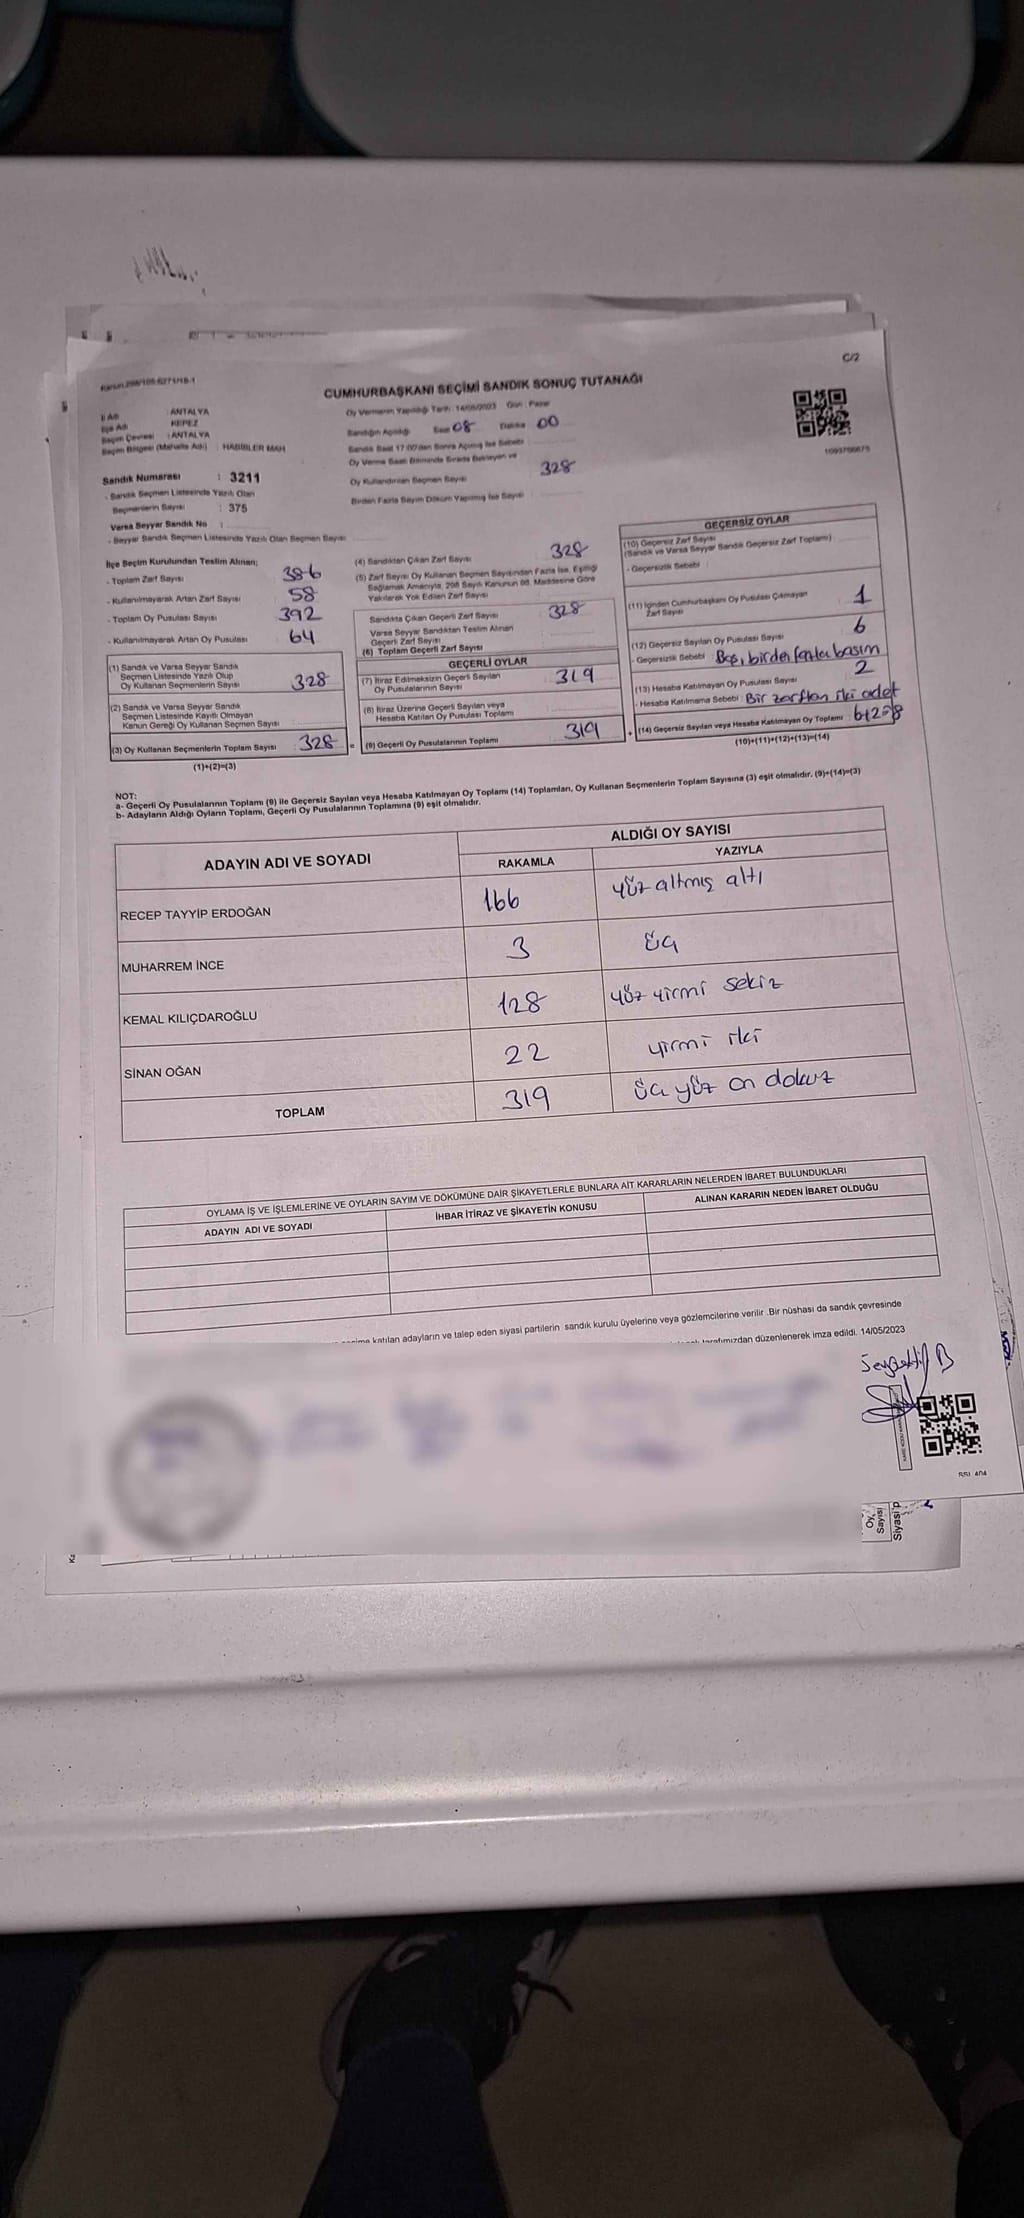 C/2
CUMHURBAŞKANI SEÇİMİ SANDIK SONUÇ TUTANAĞI
İl Adı : ANTALYA
İlçe Adı : KEPEZ
Seçim Çevresi : ANTALYA
Seçim Bölgesi (Mahalle Adı) : HABİBLER MAH
Sandık Numarası : 3211
- Sandık Seçmen Listesinde Yazılı Olan
Seçmenlerin Sayısı : 375
Varsa Seyyar Sandık No :
- Seyyar Sandık Seçmen Listesinde Yazılı Olan Seçmen Sayısı
Oy Vermenin Yapıldığı Tarih: 14/05/2023 Gün : Pazar
Sandığın Açıldığı Saat 08 Dakika 00
Sandık Saat 17.00'den Sonra Açılmış İse Sebebi
Oy Verme Saati Bitiminde Sırada Bekleyen ve
Oy Kullandırılan Seçmen Sayısı 328
Birden Fazla Sayım Döküm Yapılmış İse Sayısı
İlçe Seçim Kurulundan Teslim Alınan;
- Toplam Zarf Sayısı 386
- Kullanılmayarak Artan Zarf Sayısı 58
- Toplam Oy Pusulası Sayısı 392
- Kullanılmayarak Artan Oy Pusulası 64
(1) Sandık ve Varsa Seyyar Sandık
Seçmen Listesinde Yazılı Olup
Oy Kullanan Seçmenlerin Sayısı 328
(2) Sandık ve Varsa Seyyar Sandık
Seçmen Listesinde Kayıtlı Olmayan
Kanun Gereği Oy Kullanan Seçmen Sayısı
(3) Oy Kullanan Seçmenlerin Toplam Sayısı 328
(1)+(2)=(3)
(4) Sandıktan Çıkan Zarf Sayısı 328
(5) Zarf Sayısı Oy Kullanan Seçmen Sayısından Fazla İse, Eşitliği
Sağlamak Amacıyla, 298 Sayılı Kanunun 98. Maddesine Göre
Yakılarak Yok Edilen Zarf Sayısı
Sandıkta Çıkan Geçerli Zarf Sayısı 328
Varsa Seyyar Sandıktan Teslim Alınan
Geçerli Zarf Sayısı
(6) Toplam Geçerli Zarf Sayısı
GEÇERLİ OYLAR
(7) İtiraz Edilmeksizin Geçerli Sayılan
Oy Pusulalarının Sayısı 319
(8) İtiraz Üzerine Geçerli Sayılan veya
Hesaba Katılan Oy Pusulası Toplamı
= (9) Geçerli Oy Pusulalarının Toplamı 319
GEÇERSİZ OYLAR
(10) Geçersiz Zarf Sayısı
(Sandık ve Varsa Seyyar Sandık Geçersiz Zarf Toplamı)
- Geçersizlik Sebebi
(11) İçinden Cumhurbaşkanı Oy Pusulası Çıkmayan
Zarf Sayısı 1
(12) Geçersiz Sayılan Oy Pusulası Sayısı 6
- Geçersizlik Sebebi Boş, birden fazla basım
(13) Hesaba Katılmayan Oy Pusulası Sayısı 2
- Hesaba Katılmama Sebebi Bir zarftan iki adet
+ (14) Geçersiz Sayılan veya Hesaba Katılmayan Oy Toplamı 6+2=8
(10)+(11)+(12)+(13)=(14)
NOT:
a- Geçerli Oy Pusulalarının Toplamı (9) ile Geçersiz Sayılan veya Hesaba Katılmayan Oy Toplamı (14) Toplamları, Oy Kullanan Seçmenlerin Toplam Sayısına (3) eşit olmalıdır. (9)+(14)=(3)
b- Adayların Aldığı Oyların Toplamı, Geçerli Oy Pusulalarının Toplamına (9) eşit olmalıdır.
ADAYIN ADI VE SOYADI
ALDIĞI OY SAYISI
RAKAMLA YAZIYLA
RECEP TAYYİP ERDOĞAN 166 yüz altmış altı
MUHARREM İNCE 3 üç
KEMAL KILIÇDAROĞLU 128 yüz yirmi sekiz
SİNAN OĞAN 22 yirmi iki
TOPLAM 319 üç yüz on dokuz
OYLAMA İŞ VE İŞLEMLERİNE VE OYLARIN SAYIM VE DÖKÜMÜNE DAİR ŞİKAYETLERLE BUNLARA AİT KARARLARIN NELERDEN İBARET BULUNDUKLARI
ADAYIN ADI VE SOYADI İHBAR İTİRAZ VE ŞİKAYETİN KONUSU ALINAN KARARIN NEDEN İBARET OLDUĞU
katılan adayların ve talep eden siyasi partilerin sandık kurulu üyelerine veya gözlemcilerine verilir .Bir nüshası da sandık çevresinde
tarafımızdan düzenlenerek imza edildi. 14/05/2023
Oy,
Sayısı